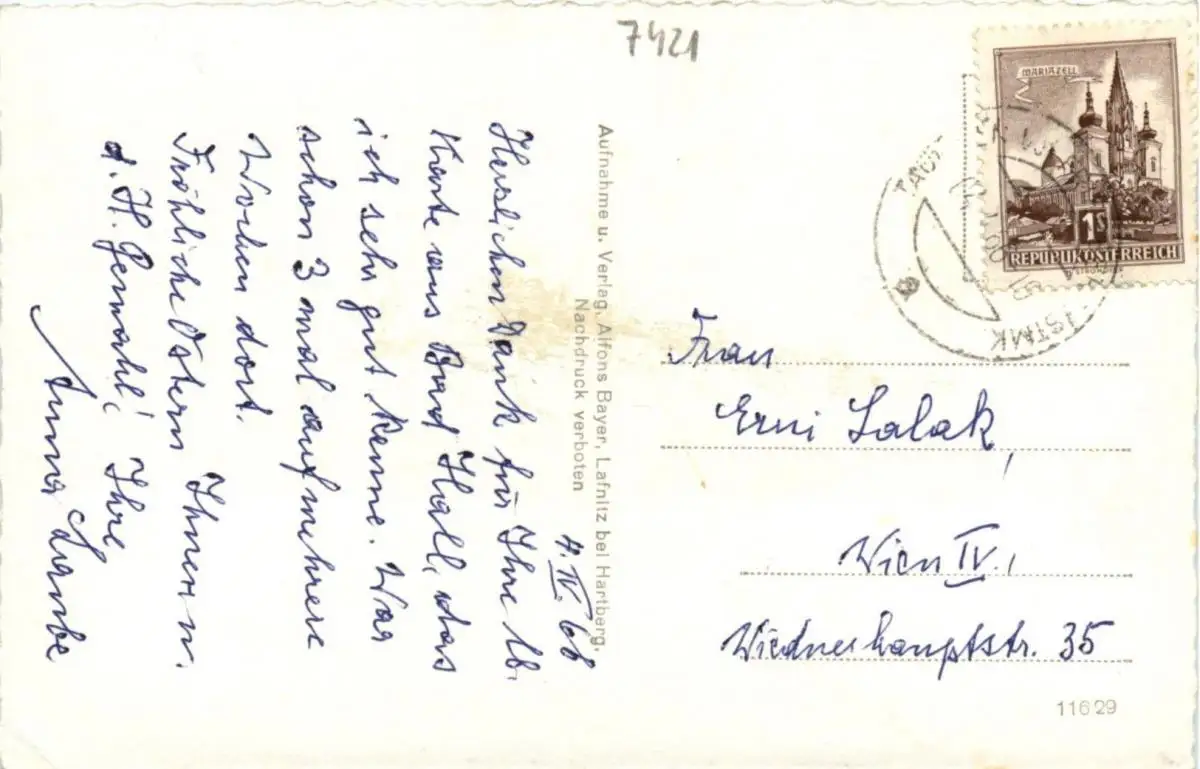 7421
MARIAZELL
1S
REPUBLIK ÖSTERREICH
STMK
4. IV. 66
Herzlichen Dank für Ihre lb.
Karte aus Bad Hall, das
ich sehr gut kenne. War
schon 3 mal auf mehrere
Wochen dort.
Fröhliche Ostern Ihnen u.
d. H. Gemahl! Ihre
Anna
Aufnahme u. Verlag, Alfons Bayer, Lafnitz bei Hartberg.
Nachdruck verboten
Frau
Erni Salak,
Wien IV.,
Wiednerhauptstr. 35
11629